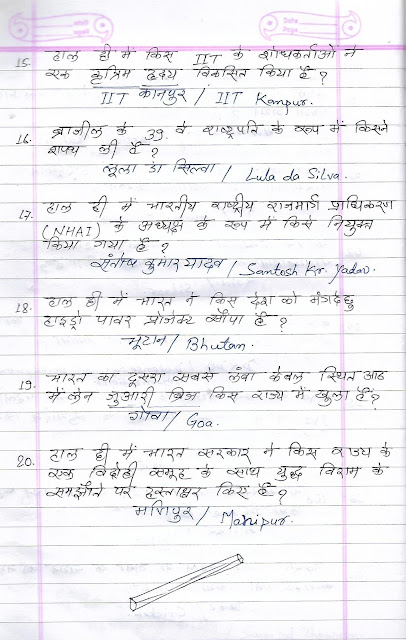 Date
Page
15. हाल ही में किस IIT के शोधकर्ताओं ने
एक कृत्रिम हृदय विकसित किया है ?
IIT कानपुर / IIT Kanpur.
16. ब्राजील के 39 वे राष्ट्रपति के रूप में किसने
शपथ ली है ?
लूला डा सिल्वा / Lula da Silva.
17. हाल ही में भारतीय राष्ट्रीय राजमार्ग प्राधिकरण
(NHAI) के अध्यक्ष के रूप में किसे नियुक्त
किया गया है ?
संतोष कुमार यादव / Santosh Kr. Yadav.
18. हाल ही में भारत ने किस देश को मंगदेछु
हाइड्रो पावर प्रोजेक्ट सौंपा है ?
भूटान / Bhutan.
19. भारत का दूसरा सबसे लंबा केबल स्थित आठ
में लेन जुआरी ब्रिज किस राज्य में खुला है ?
गोवा / Goa.
20. हाल ही में भारत सरकार ने किस राज्य के
एक विद्रोही समूह के साथ युद्ध विराम के
समझौते पर हस्ताक्षर किए है ?
मणिपुर / Manipur.